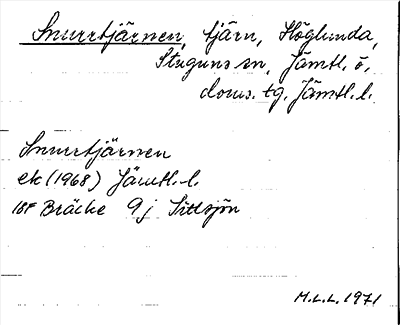 Snurrtjärnen, tjärn, Höglunda,
Stuguns sn, Jämtl. ö.
doms. tg. Jämtl. l.
Snurrtjärnen
ek (1968) Jämtl. l.
18F Bräcke 9j Sittsjön
M.L.L. 1971